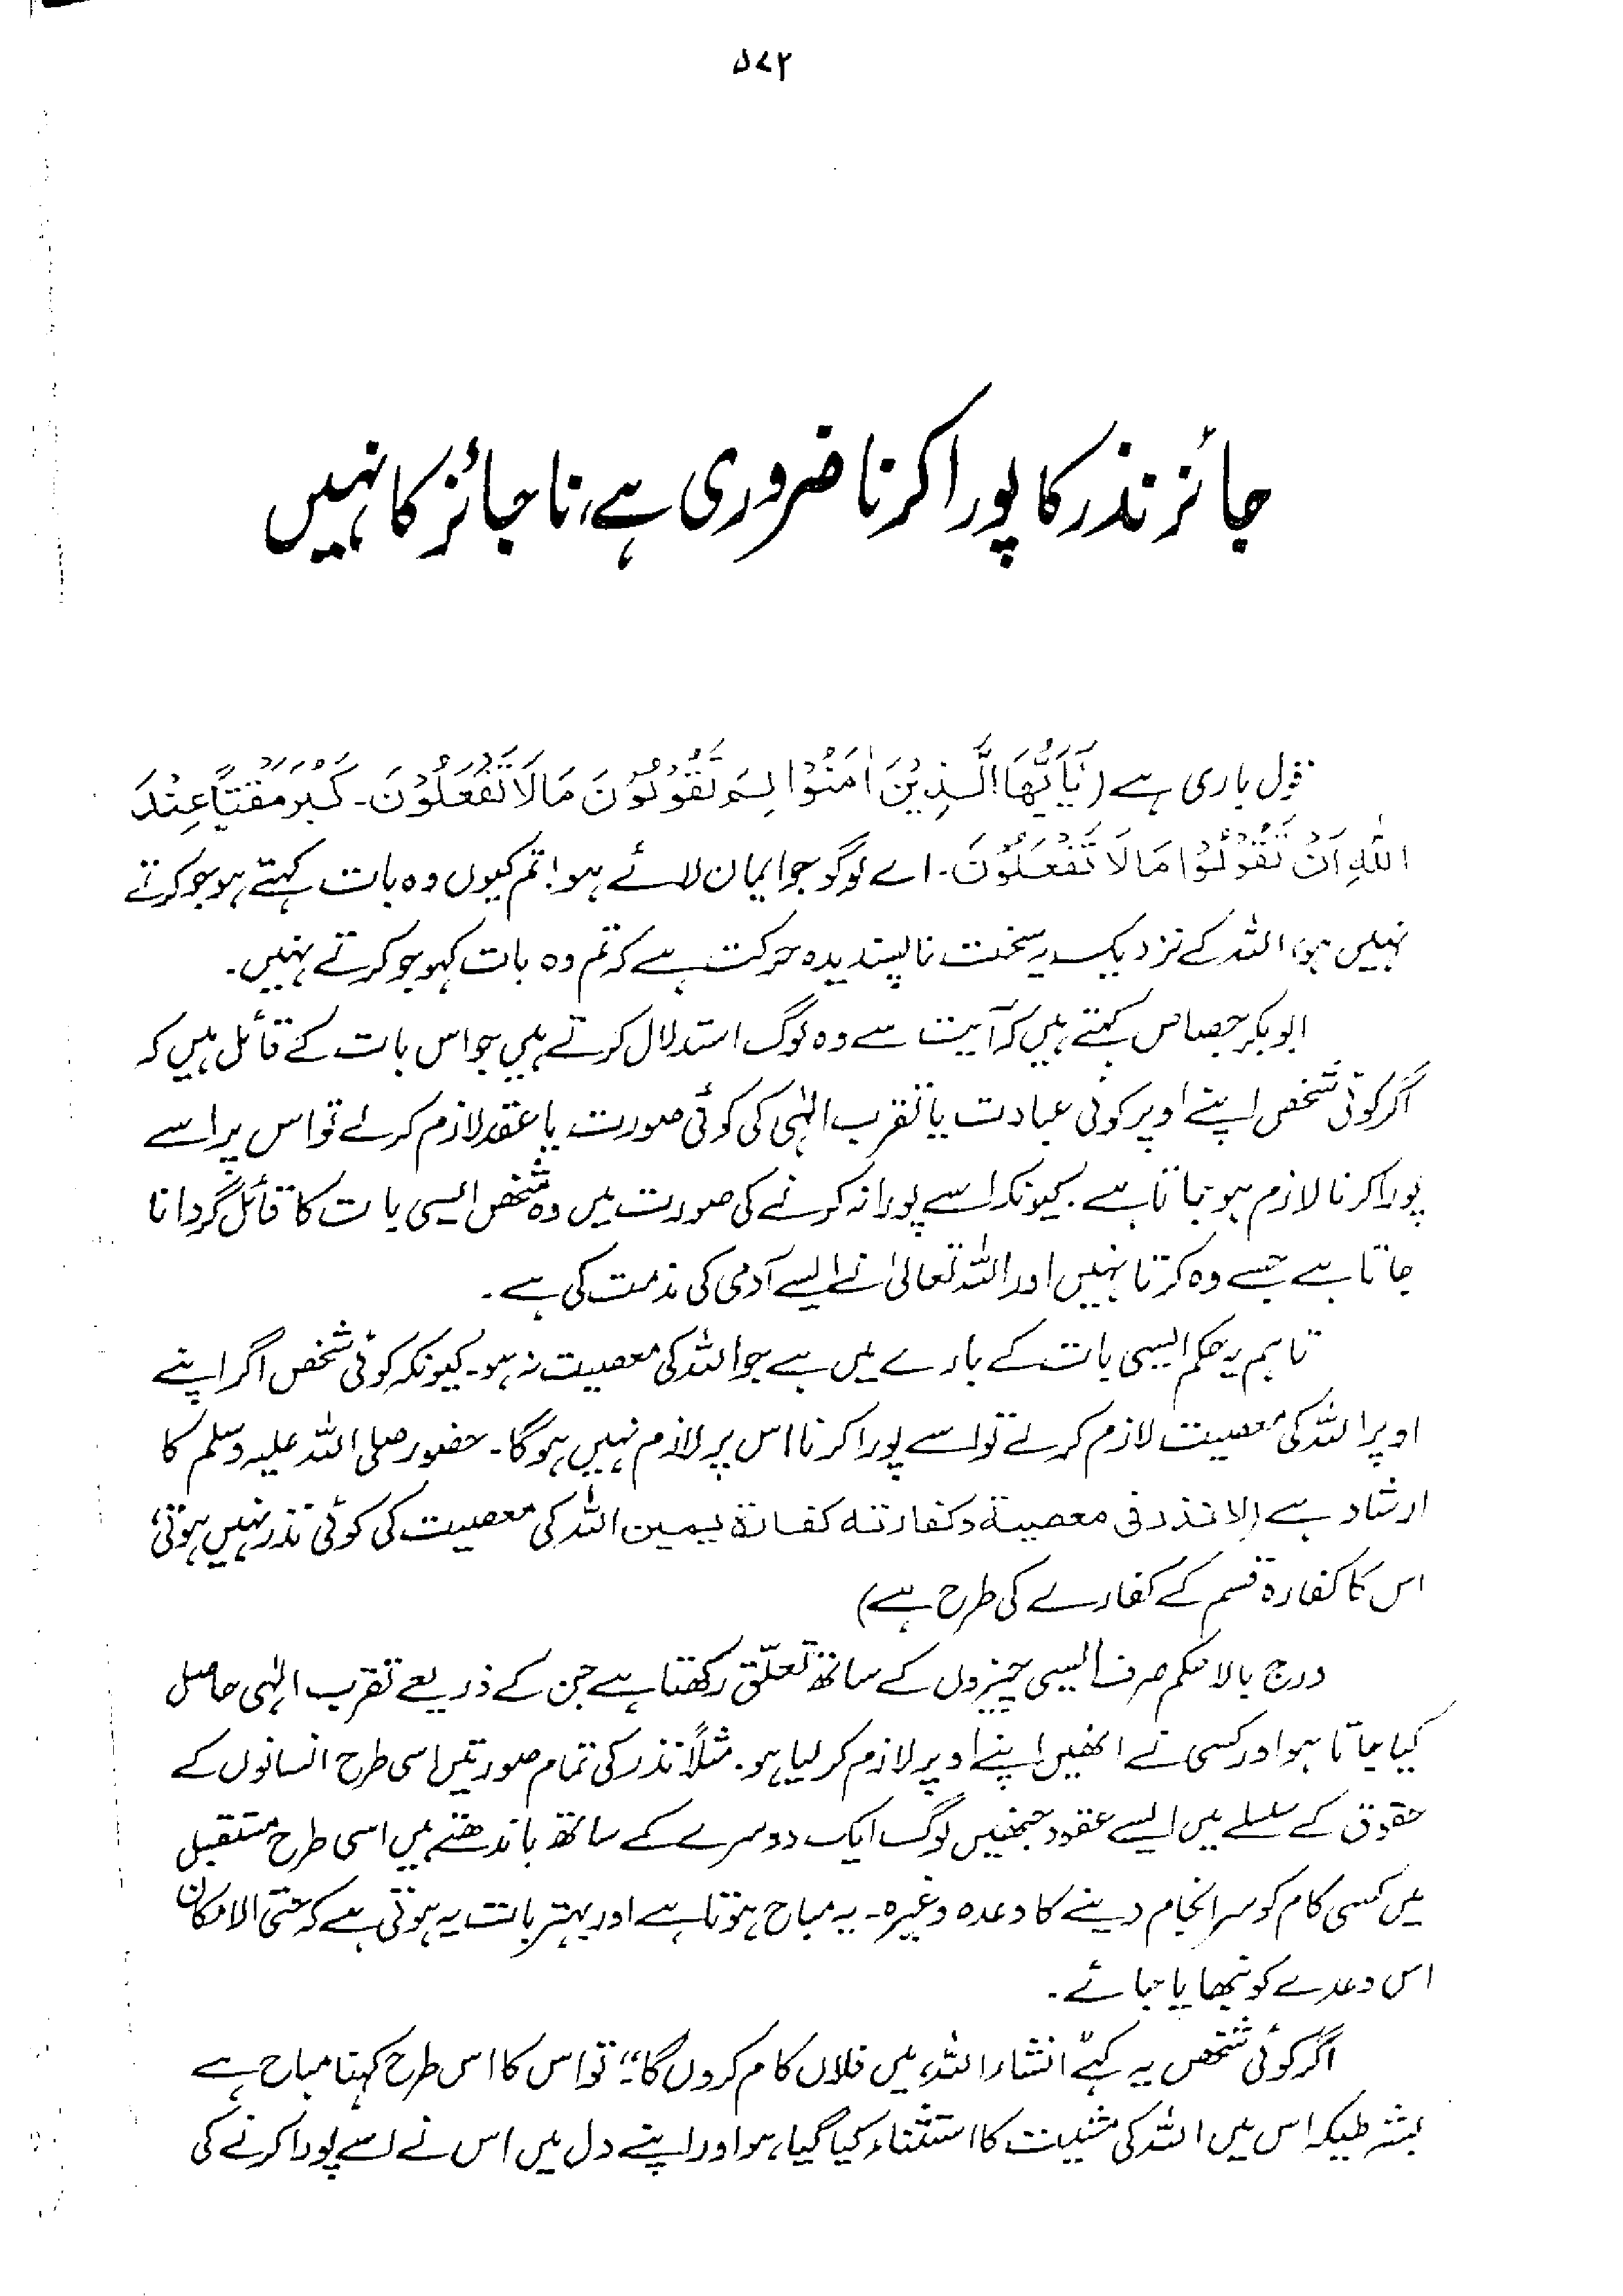 ۵۷۲
جائز نذر کا پورا کرنا ضروری ہے، ناجائز کا نہیں
قول باری ہے (يَآَيُّهَا الَّذِيْنَ اٰمَنُوْا لِمَ تَقُوْلُوْنَ مَا لَا تَفْعَلُوْنَ۔ كَبُرَ مَقْتًا عِنْدَ
اللّٰهِ اَنْ تَقُوْلُوْا مَا لَا تَفْعَلُوْنَ۔ اے لوگو جو ایمان لائے ہو! تم کیوں وہ بات کہتے ہو جو کرتے
نہیں ہو، اللہ کے نزدیک یہ سخت ناپسندیدہ حرکت ہے کہ تم وہ بات کہو جو کرتے نہیں۔
ابوبکر جصاص کہتے ہیں کہ آیت سے وہ لوگ استدلال کرتے ہیں جو اس بات کے قائل ہیں کہ
اگر کوئی شخص اپنے اوپر کوئی عبادت یا تقرب الٰہی کی کوئی صورت یا عقد لازم کرلے تو اس پر اسے
پورا کرنا لازم ہو جاتا ہے۔ کیونکہ اسے پورا نہ کرنے کی صورت میں وہ شخص ایسی بات کا قائل گردانا
جاتا ہے جسے وہ کرتا نہیں اور اللہ تعالیٰ نے ایسے آدمی کی مذمت کی ہے۔
تاہم یہ حکم ایسی بات کے بارے میں ہے جو اللہ کی معصیت نہ ہو۔ کیونکہ کوئی شخص اگر اپنے
اوپر اللہ کی معصیت لازم کرلے تو اسے پورا کرنا اس پر لازم نہیں ہوگا۔ حضور صلی اللہ علیہ وسلم کا
ارشاد ہے (لا نذر فی معصیۃ وکفارتہ کفارۃ یمین اللہ کی معصیت کی کوئی نذر نہیں ہوتی،
اس کا کفارہ قسم کے کفارے کی طرح ہے)
درج بالا حکم صرف ایسی چیزوں کے ساتھ تعلّق رکھتا ہے جن کے ذریعے تقرب الٰہی حاصل
کیا جاتا ہو اور کسی نے انھیں اپنے اوپر لازم کر لیا ہو۔ مثلاً نذر کی تمام صورتیں اسی طرح انسانوں کے
حقوق کے سلسلے میں ایسے عقود جنھیں لوگ ایک دوسرے کے ساتھ باندھتے ہیں اسی طرح مستقبل
میں کسی کام کو سرانجام دینے کا وعدہ وغیرہ۔ یہ مباح ہوتا ہے اور بہتر بات یہ ہوتی ہے کہ حتی الامکان
اس وعدے کو نبھایا جائے۔
اگر کوئی شخص یہ کہے "انشاء اللہ، میں فلاں کام کروں گا"؛ تو اس کا اس طرح کہنا مباح ہے
بشرطیکہ اس میں اللہ کی مشیت کا استثناء کیا گیا ہو اور اپنے دل میں اس نے اسے پورا کرنے کی